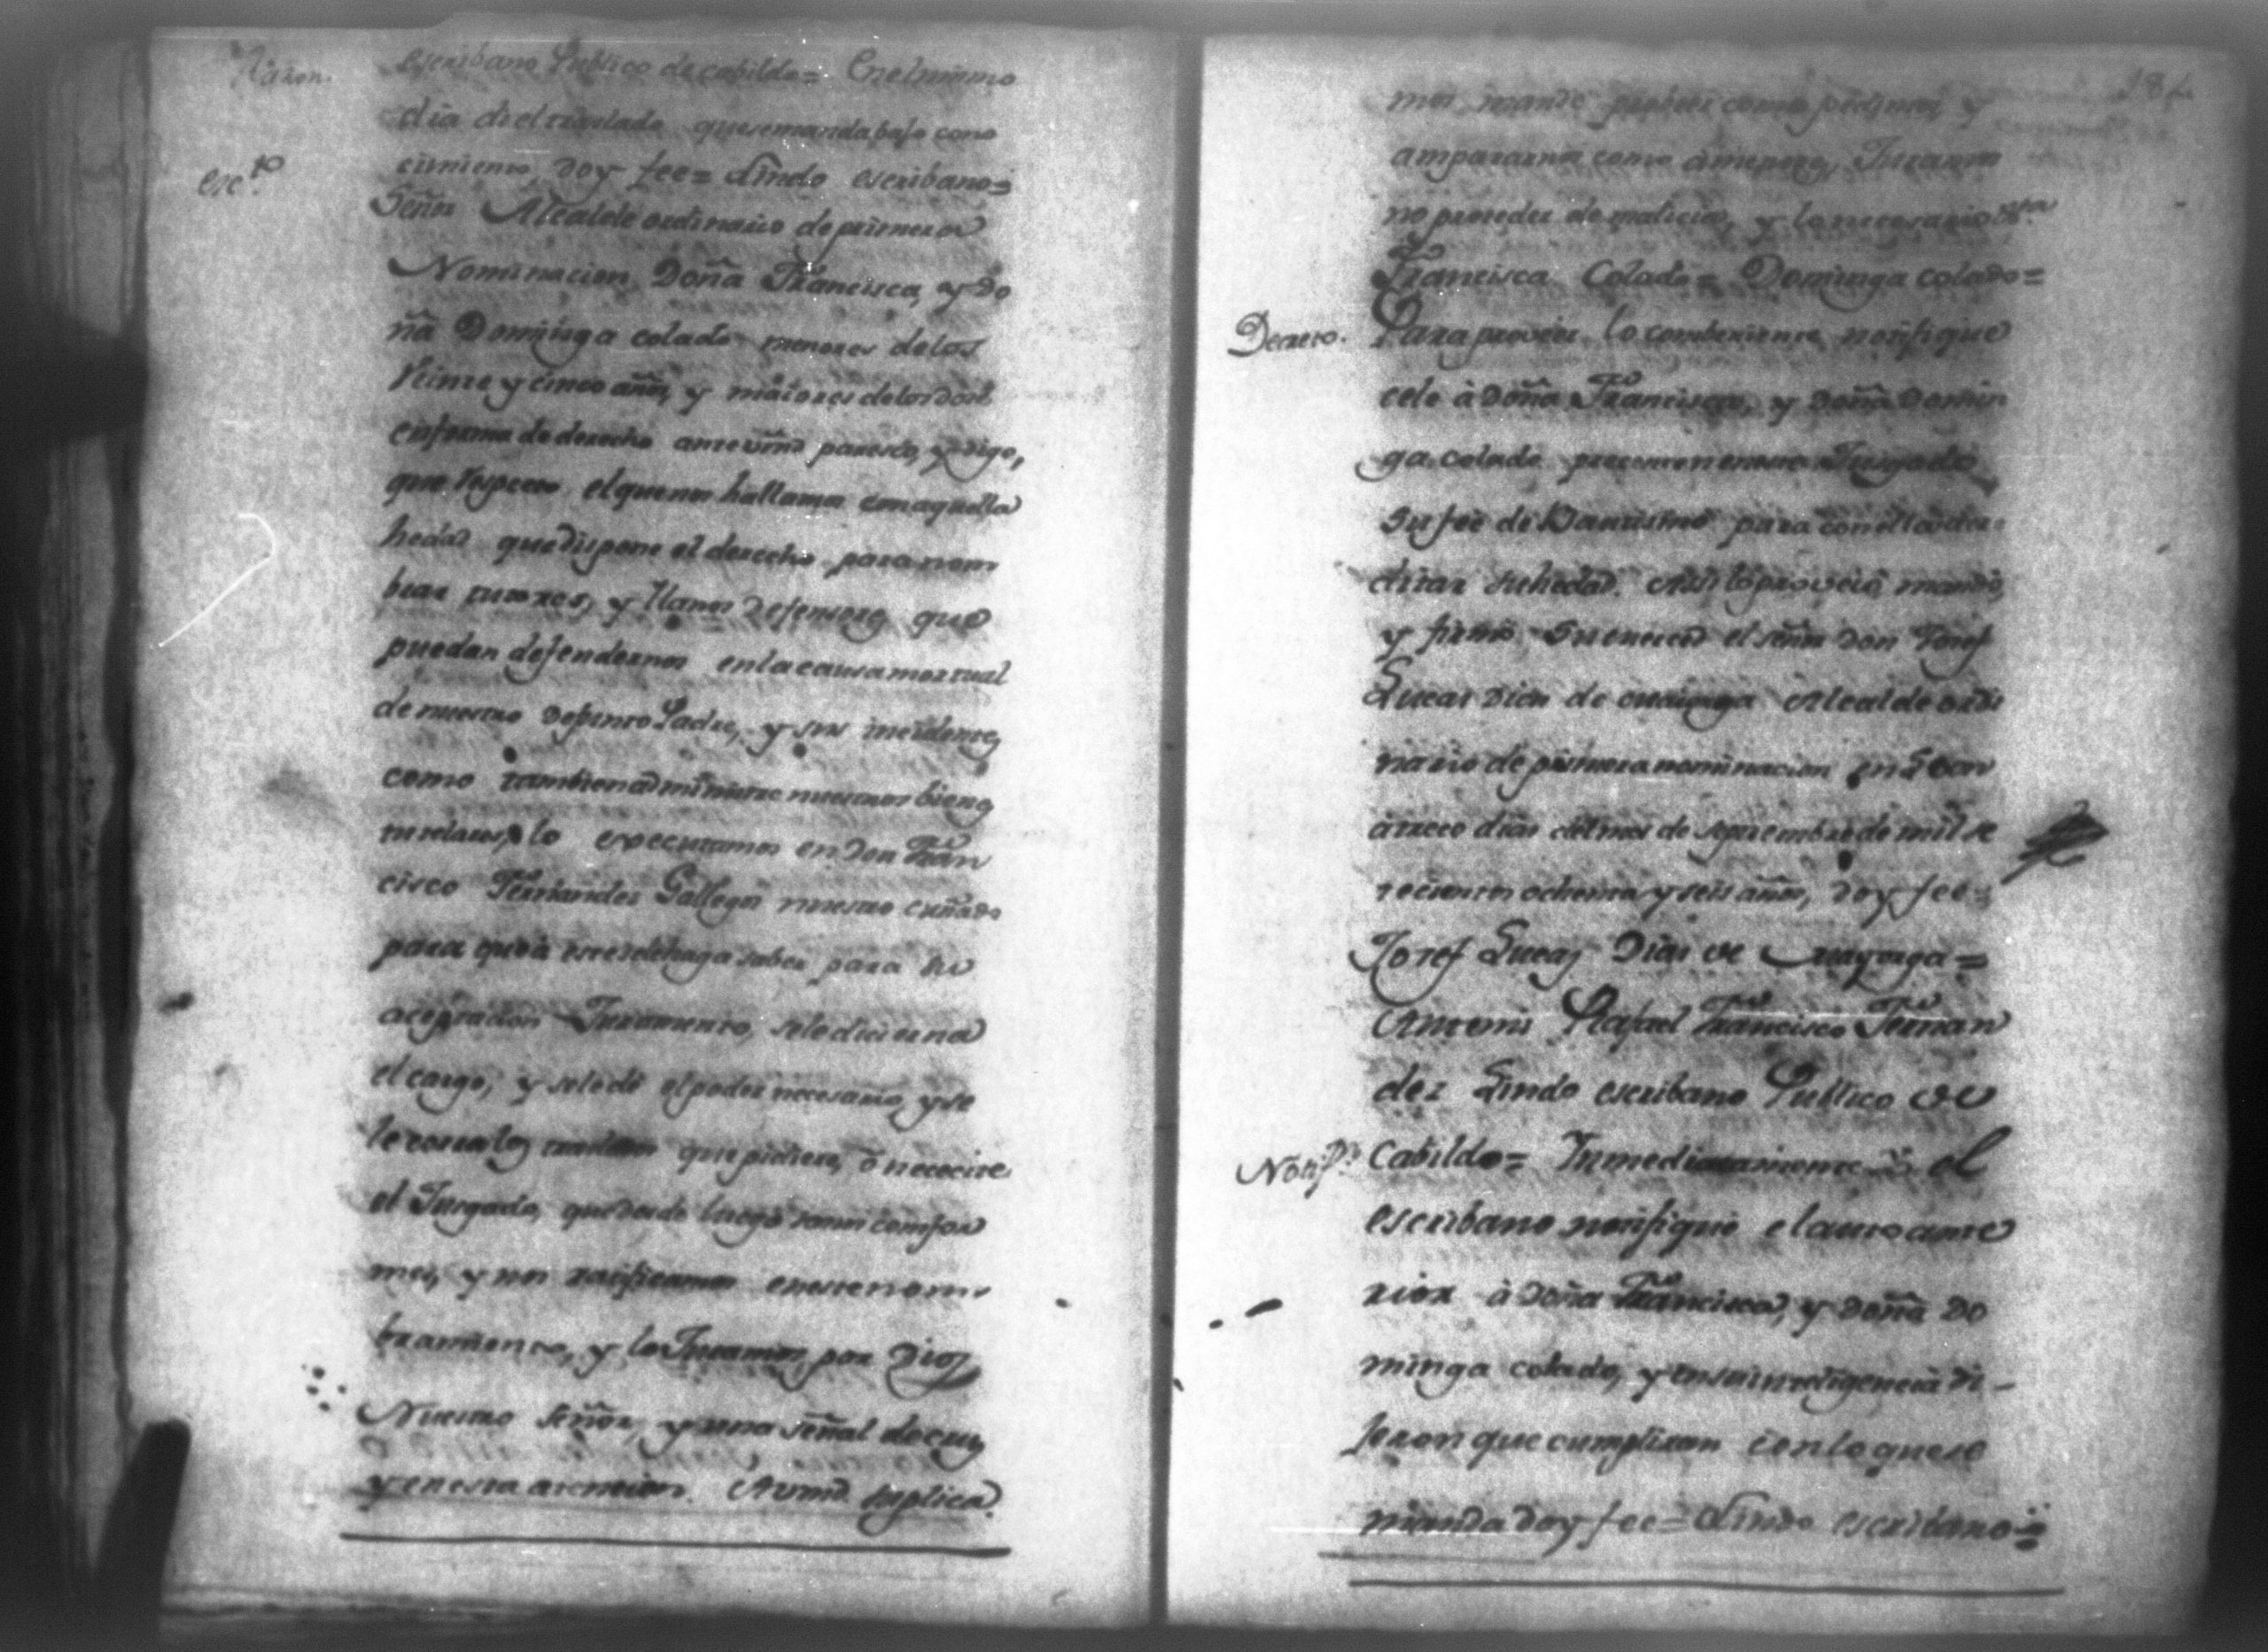 Razon.
escribano Publico de cabildo= En el mismo
dia di el traslado que se manda bajo cono
cimiento, doy fee= Lindo escribano=
esc.to
Señor Alcalde ordinario de primera
Nominacion, Doña Francisca, y Do
ña Dominga colado menores de los
Veinte y cinco años, y maiores de los dose
enforma de derecho ante vmd paresco, y digo,
que respecto el que nos hallamos con aquella
hedad que dispone el derecho para nom
brar tutores, y llanos defensores que
puedan defendernos en la causa mortual
de nuestro defunto Padre, y sus incidentes
como tambien administre nuestros bienes
tutelares, lo executamos en Don Fran
cisco Fernandes Gallegos nuestro cuñado
para que à este se le haga saber para su
aceptacion Juramento, se le dicierna
el cargo, y se le dè el poder necesario, y se
le corra los que pidiere, ò nececite
el Jusgado, que desde luego somos confor
mes, y nos ratificamos en este nom-
bramiento, y lo Juramos por Dios
Nuestro Señor, y una señal de cruz
y en esta atencion. A vmd. suplica
mos mande proveer como pedimos, y
ampararnos como à menores, Juramos
no proceder de malicia, y lo necesario &a
Francisca Colado= Dominga colado=
Decreto.
Para proveer lo combeniente notifique
cele à Doña Francisca, y Doña Domin
ga colado presenten en este Jusgado
su fee de Bautismo para con ella acre
ditar su hedad. Assi lo proveiò, mandò,
y firmò Su merced el señor Don Josef
Lucas Dias de Alcalde ordi
nario de primera nominacion en
à trece dias del mes de septiembre de mil se
tecientos ochenta y seis años, doy fee=
Josef Lucas Dias de
Antonio Rafael Francisco Fernan
dez Lindo escribano Publico de
Notif.n
Cabildo= Inmediatamente el
escribano notifiquè el auto ante
rior à Doña Francisca, y Doña Do
minga colado, y en su inteligencia di-
jeron que cumpliran con lo que se
manda doy fee= Lindo escribano=